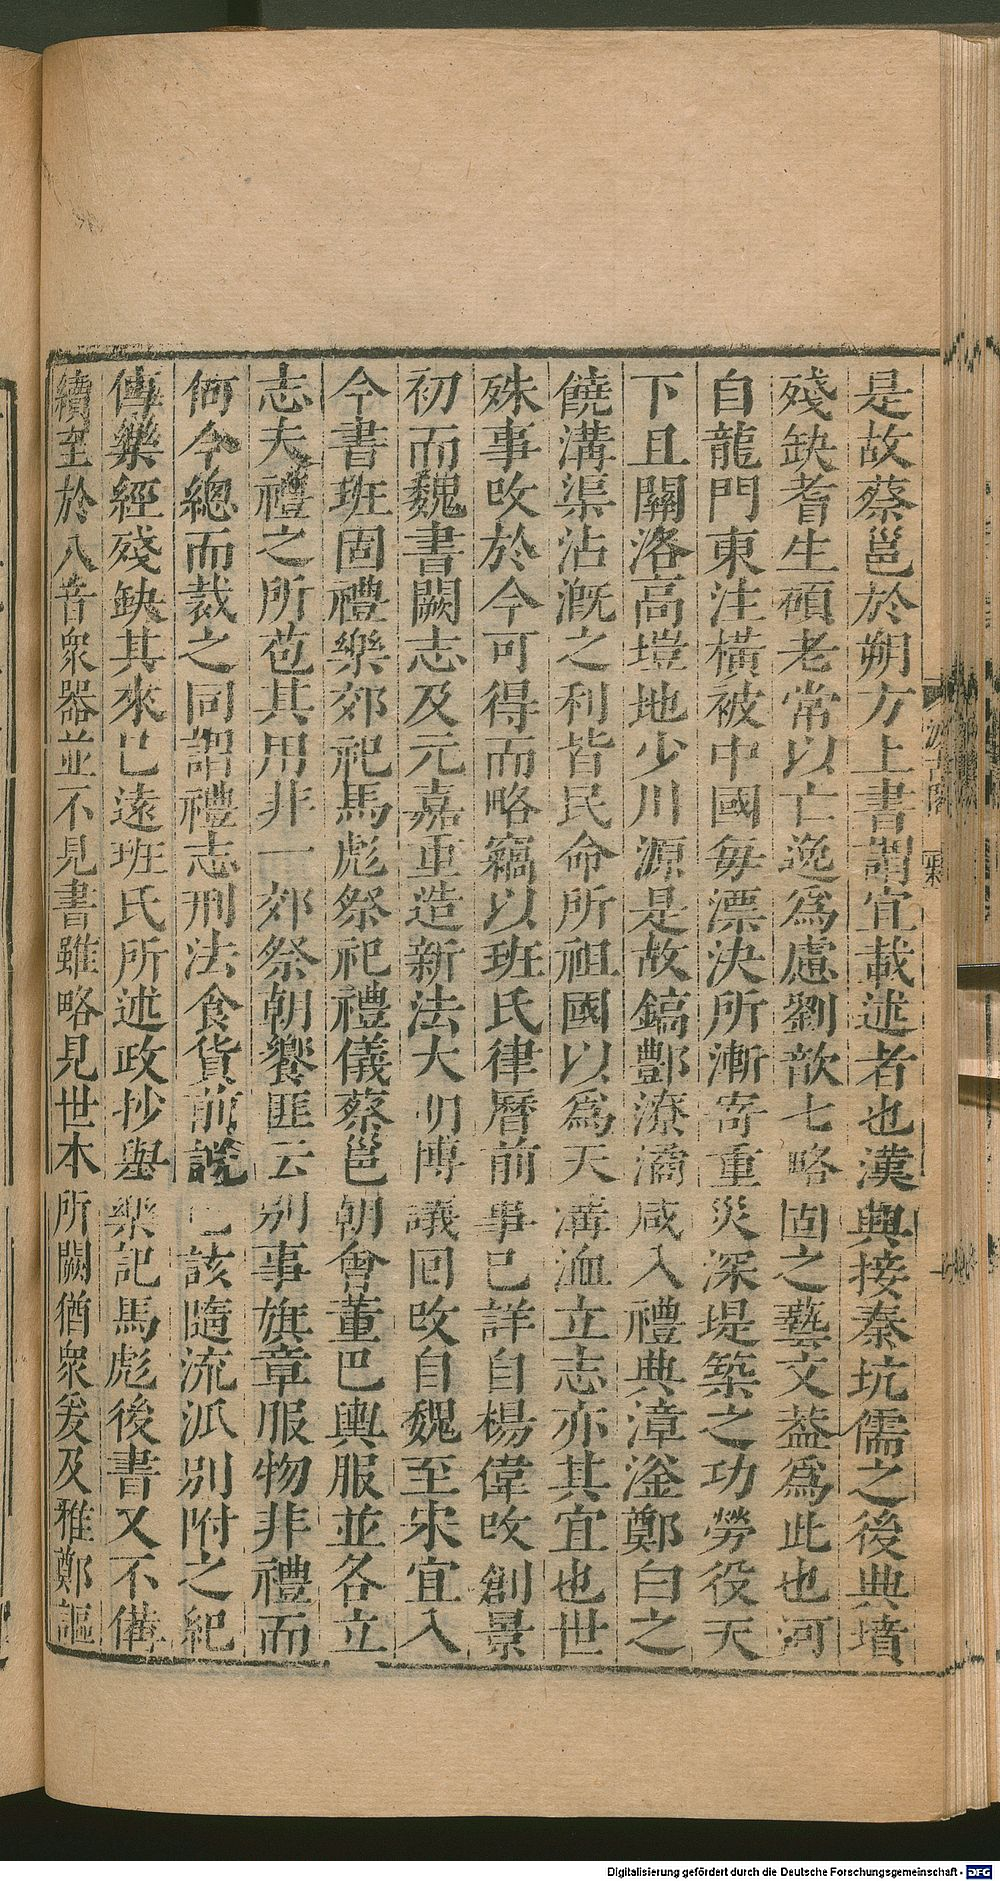 是故蔡邕於朔方上書謂宜載述者也漢興接秦坑儒之後典墳
殘缺耆生碩老常以亡逸爲慮劉歆七略固之藝文葢爲此也河
自龍門東注橫被中國每漂決所漸寄重災深堤築之功勞役天
下且關洛高塏地少川源是故鎬酆潦潏咸入禮典漳滏鄭白之
饒溝渠沾漑之利皆民命所祖國以爲天溝洫立志亦其宜也世
殊事攺於今可得而略竊以班氏律曆前事已詳自楊偉攺創景
初而魏書闕志及元嘉重造新法大明博議回攺自魏至宋宜入
今書班固禮樂郊祀馬彪祭祀禮儀蔡邕朝會董巴輿服並各立
志夫禮之所苞其用非一郊祭朝饗匪云別事旗章服物非禮而
何今總而裁之同謂禮志刑法食貨前說已該隨流派別附之紀
傳樂經殘缺其來已遠班氏所述政抄舉樂記馬彪後書又不備
續至於八音衆器並不見書雖略見世本所闕猶衆爰及雅鄭謳
汲古閣
Digitalisierung gefördert durch die Deutsche Forschungsgemeinschaft - DFG